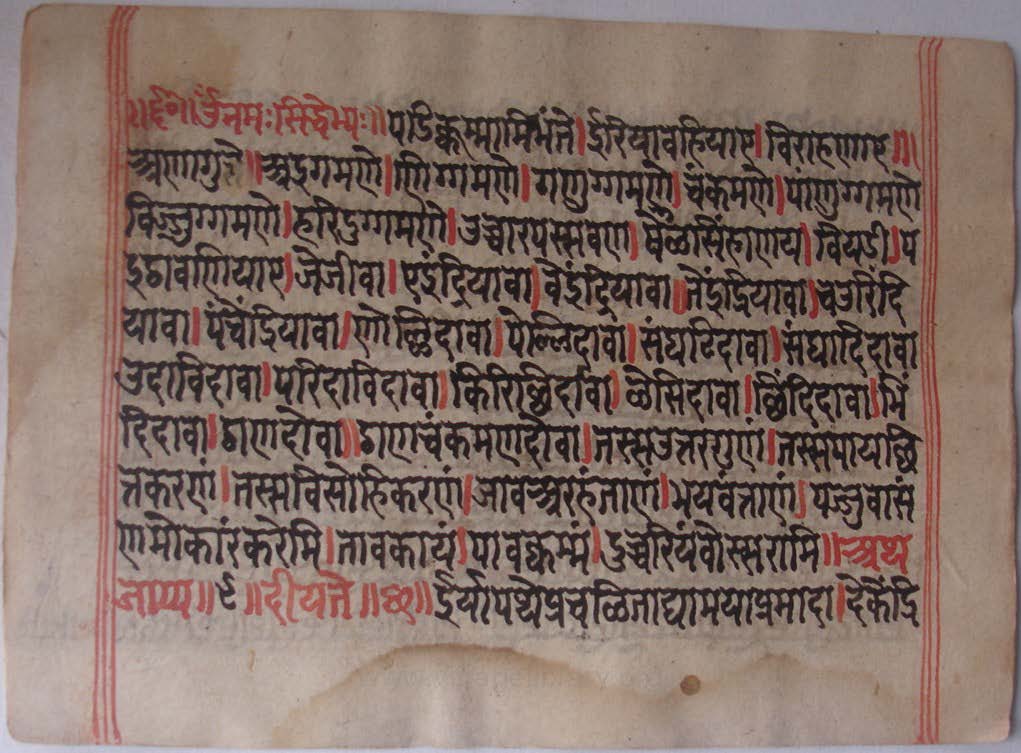 ॥र्द॰॥ ॐ नमः सिद्धेभ्यः॥ पडिक्कम्मामि भंते। ईरियावहियाए। विराहणाए॥
अणागुत्ते॥ अइगमणे। णिग्गमणे। गणुग्गमणे। चंकमणे। पाणुग्गमणे
विज्जुग्गमणे। हरिदुग्गमणे। उच्चारपस्सवण। षेळसिंहाणय। वियडी। प
इठावाणियाए। जेजीवा। एइंदियावा। वेइंदियावा। तेइंद्रियावा। चउरिंदि
यावा। पंचेंद्रियावा। णोल्लिदावा। पेल्लिदावा। संघटिदावा। संघादिदावा
उदाविदावा। परिदाविदावा। किरिछिदावा। ळेसिदावा। छिंदिदावा। भिं
दिदावा। ठाणदोवा॥ ठाणचंकमणदोवा। तस्सउत्तरगुणं। तस्सपायछि
तकरणं। तस्सविसोहिकरणं। जावअरहंताणं। भयवंताणं। पज्जुवासं
णमोकारंकरेमि। तावकायं। पावकम्मं। दुच्चरियंवोस्सरामि॥ अथ
जाप्य॥ ९ ॥ दीयते ॥ छ॥ ईर्यापथेप्रचळिताद्यामयाप्रमादा। देकेंद्रि